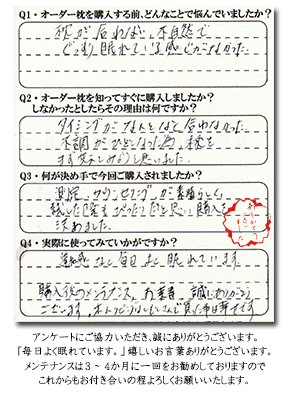 Q1・オーダー枕を購入する前、どんなことで悩んでいましたか？
枕が合わない、不自然で
眠れている感じがなかった。
Q2・オーダー枕を知ってすぐに購入しましたか？
しなかったとしたらその理由は何ですか？
タイミングがなんとなく合わなかった。
不調がひどくなった為、枕を
思いました。
Q3・何が決め手で今回ご購入されましたか？
測定、カウンセリングが素晴らしく、
試した際もぴったりだと思い購入を
決めました。
Q4・実際に使ってみていかがですか？
違和感なく毎日よく眠れています。
購入後のメンテナンス、お葉書、誠にありがとう
ございます。
アンケートにご協力いただき、誠にありがとうございます。
「毎日よく眠れています。」嬉しいお言葉ありがとうございます。
メンテナンスは３～４か月に一回をお勧めしておりますので
これからもお付き合いの程よろしくお願いいたします。